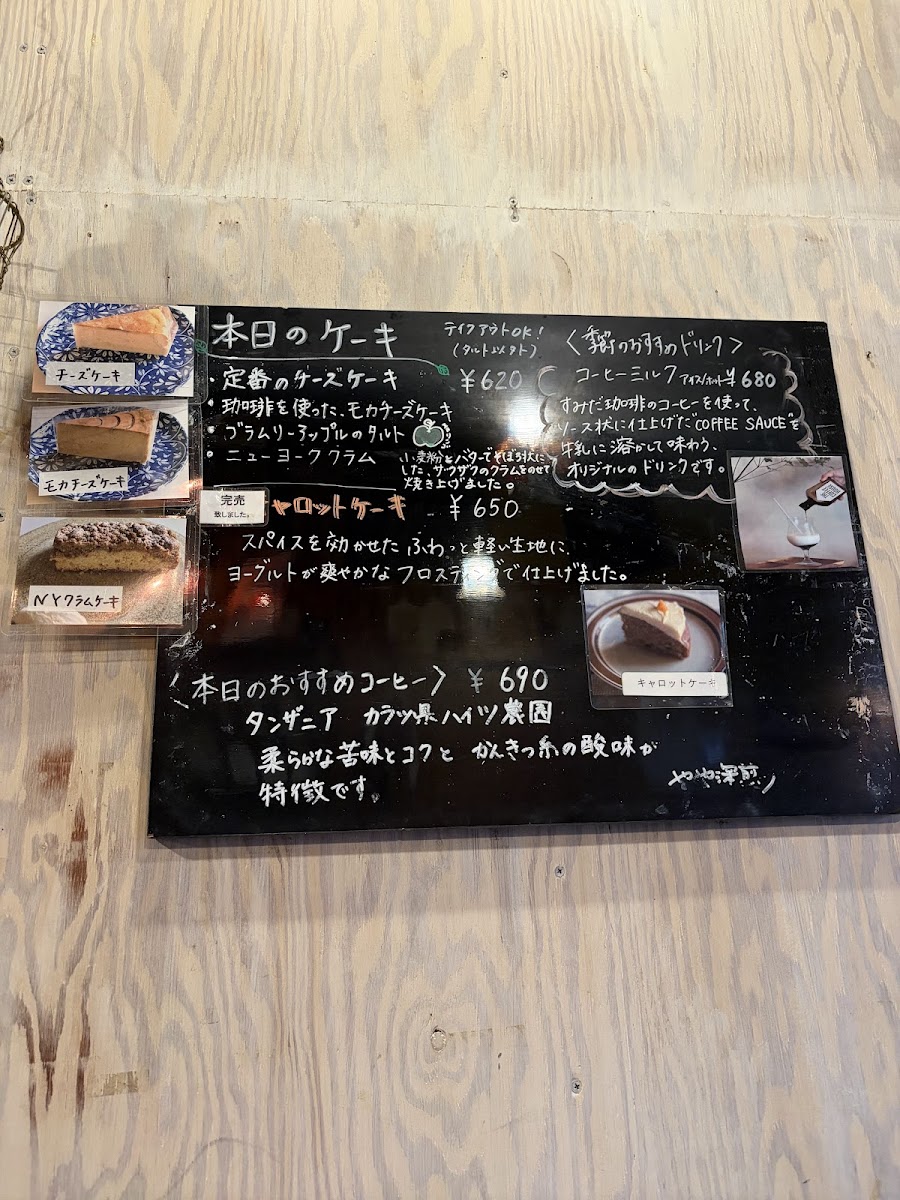 本日のケーキ
テイクアウトOK!
(タルト以外)
・定番のチーズケーキ ¥620
・珈琲を使った、モカチーズケーキ
・ブラムリーアップルのタルト
・ニューヨーククラム
小麦粉とバターでそぼろ状に
した、サクザクのクラムをのせて
焼き上げました。
完売
致しました。
ャロットケーキ ¥650
スパイスを効かせた ふわっと軽い生地に、
ヨーグルトが爽やかなフロスティングで仕上げました。
〈季節のおすすめドリンク〉
コーヒーミルク アイス/ホット ¥680
すみだ珈琲のコーヒーを使って、
ソース状に仕上げた"COFFEE SAUCE"を
牛乳に溶かして味わう、
オリジナルのドリンクです。
〈本日のおすすめコーヒー〉 ¥690
タンザニア カラツ県ハイツ農園
柔らかな苦味とコクと かんきつ系の酸味が
特徴です。
やや深煎り
チーズケーキ
モカチーズケーキ
NYクラムケーキ
キャロットケーキ